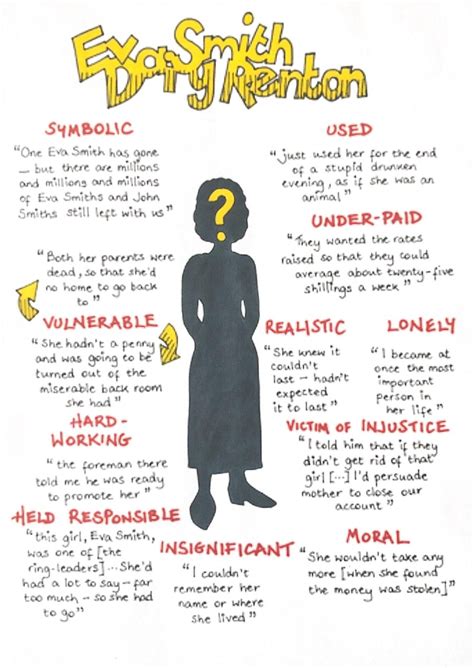 Eva Smith
Daisy Renton
SYMBOLIC
"One Eva Smith has gone
– but there are millions
and millions and millions
of Eva Smiths and John
Smiths still left with us"
USED
"just used her for the end
of a stupid drunken
evening, as if she was an
animal"
UNDER-PAID
"They wanted the rates
raised so that they could
average about twenty-five
shillings a week"
?
"Both her parents were
dead, so that she'd
no home to go back
to"
VULNERABLE
"She hadn't a penny
and was going to be
turned out of the
miserable back room
she had"
REALISTIC
"She knew it
couldn't
last – hadn't
expected
it to last"
LONELY
"I became at
once the most
important
person in
her life"
HARD-
WORKING
"the foreman there
told me he was ready
to promote her"
VICTIM OF INJUSTICE
"I told him that if they
didn't get rid of that
girl [...] I'd persuade
mother to close our
account"
HELD RESPONSIBLE
"this girl, Eva Smith,
was one of [the
ring-leaders]... She'd
had a lot to say – far
too much – so she had
to go"
INSIGNIFICANT
"I couldn't
remember her
name or where
she lived"
MORAL
"She wouldn't take any
more [when she found
the money was stolen]"